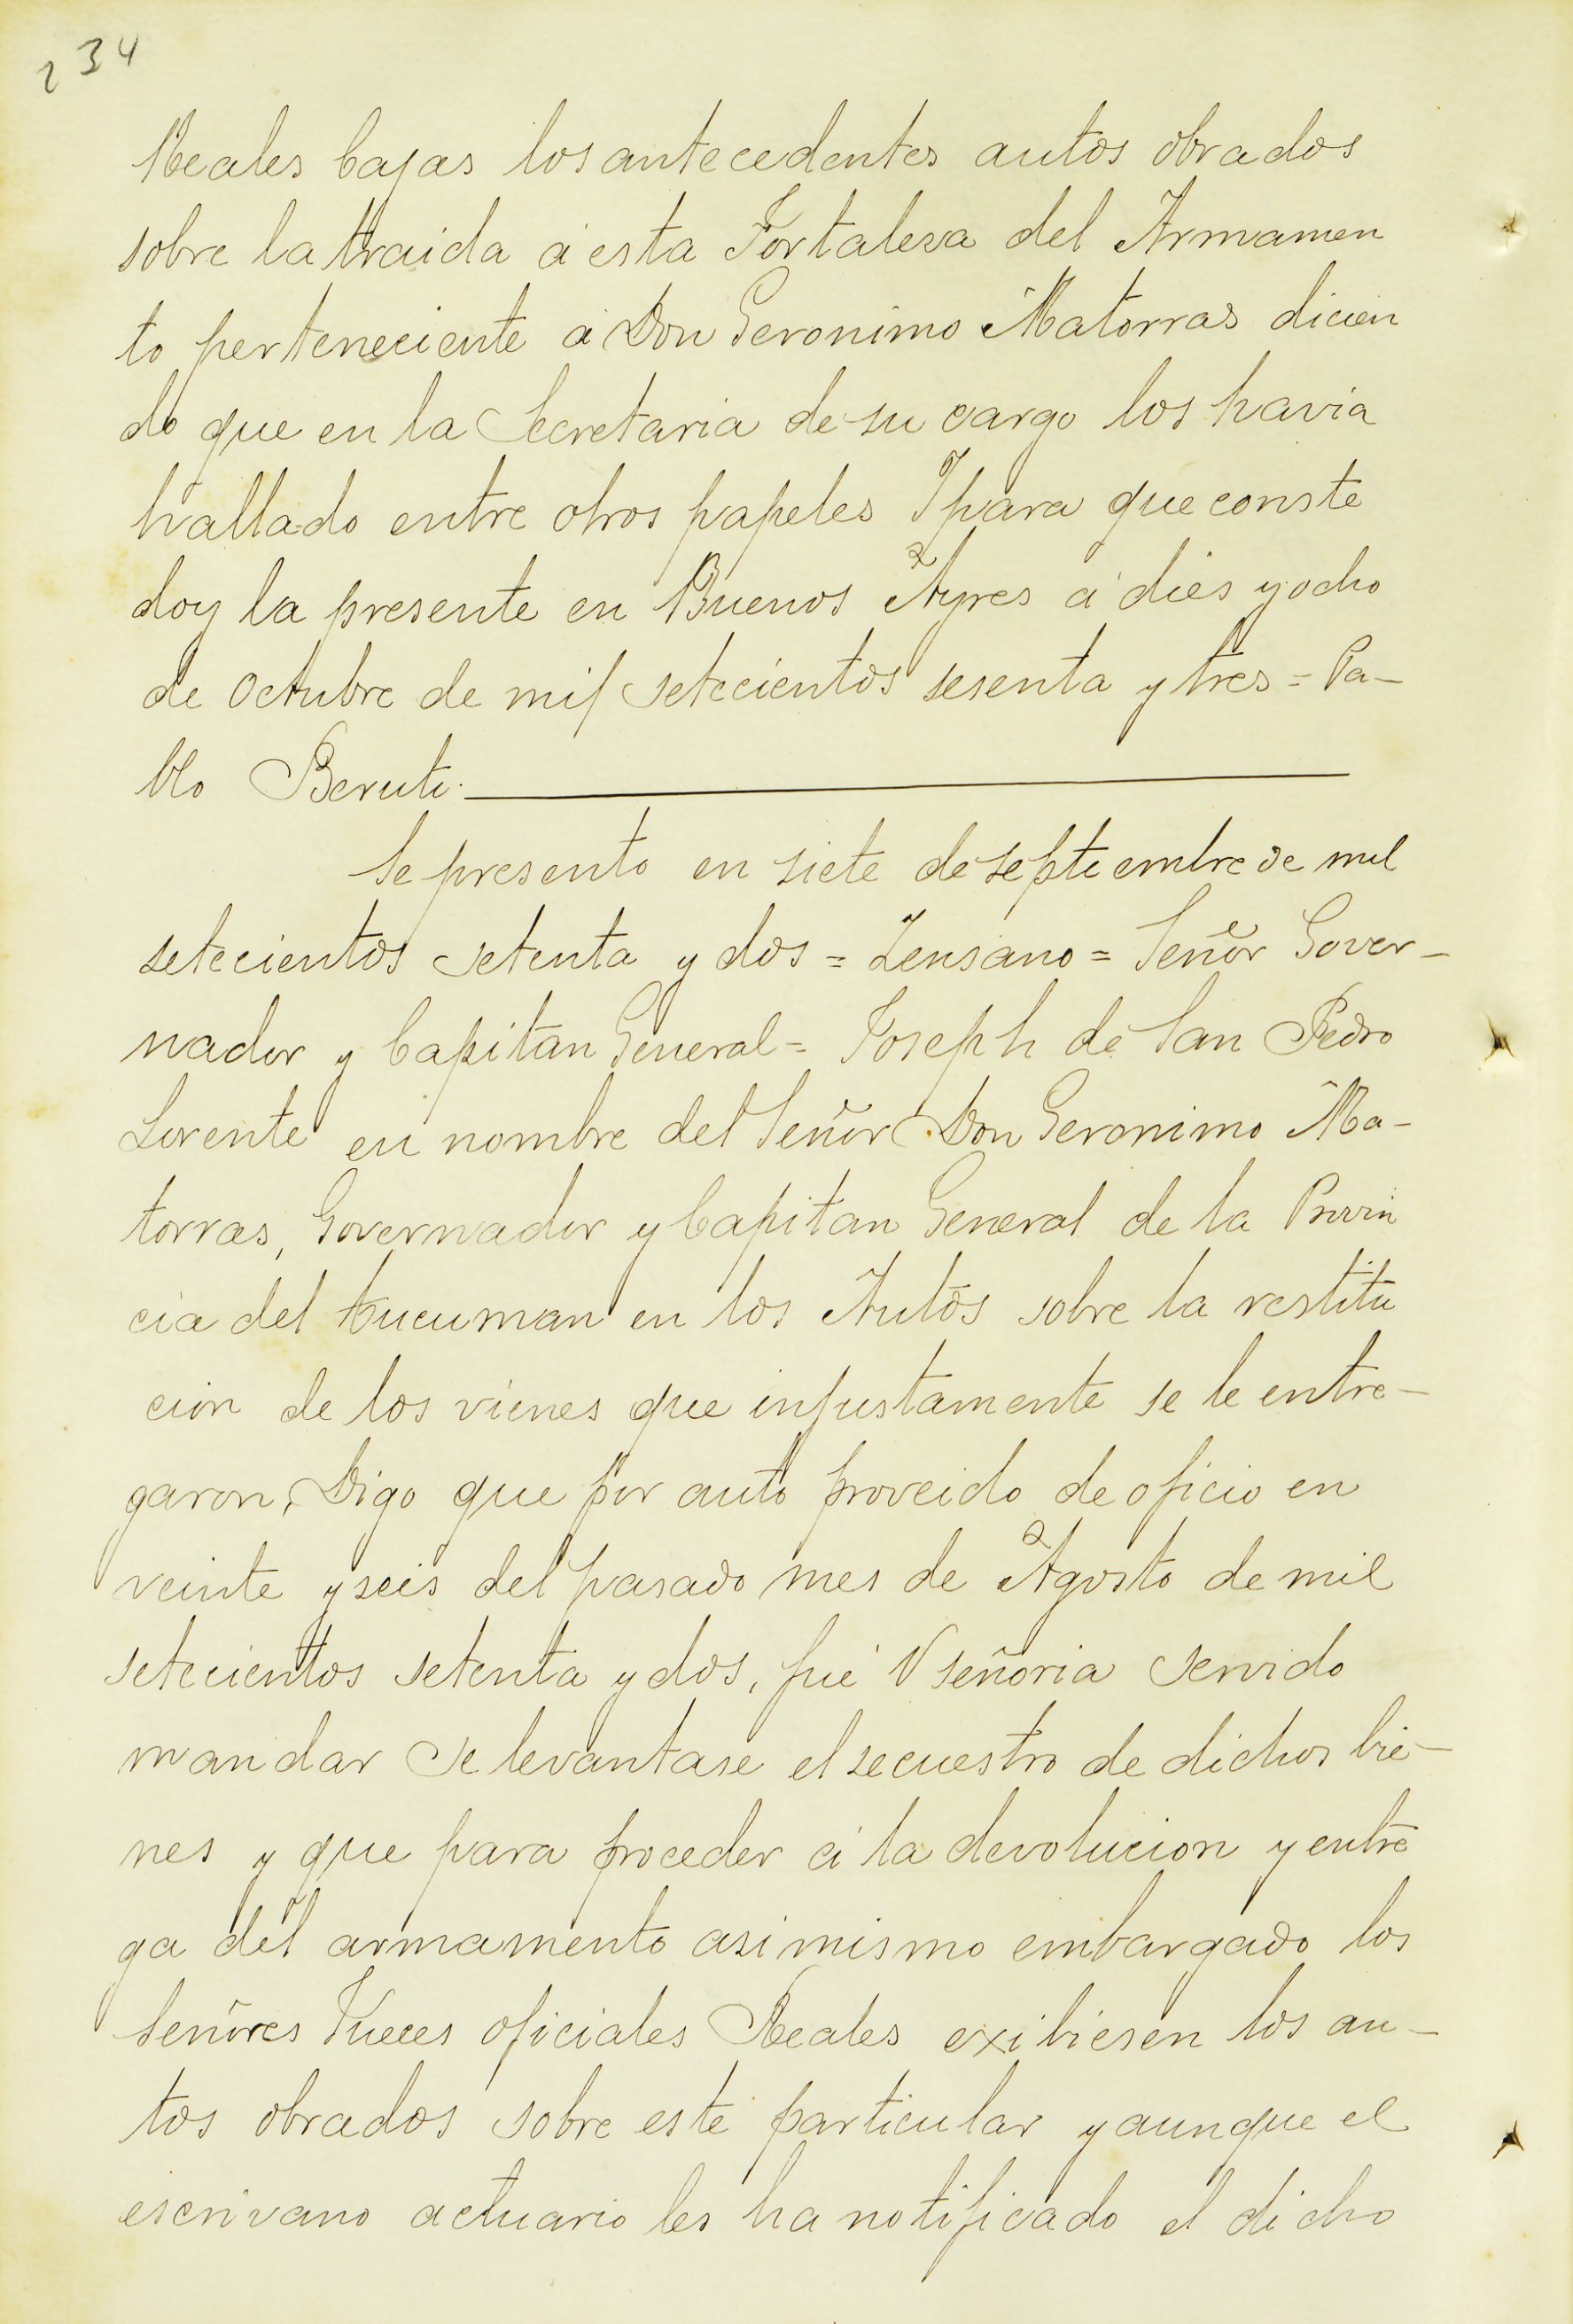 234
Reales Cajas los antecedentes autos obrados
sobre la traida á esta Fortalesa del Armamen
to perteneciente á Don Geronimo Matorras dicien
do que en la Secretaria de su cargo los havia
hallado entre otros papeles Y para que conste
doy la presente en Buenos Ayres á dies y ocho
de Octubre de mil setecientos sesenta y tres = Pa-
blo Beruti.
Se presento en siete de septiembre de mil
setecientos setenta y dos = Zensano = Señor Gover-
nador y Capitan General = Joseph de San Pedro
Lorente en nombre del Señor Don Geronimo Ma-
torras, Governador y Capitan General de la Provin
cia del tucuman en los Autos sobre la restitu
cion de los vienes que injustamente se le entre-
garon, Digo que por auto proveido de oficio en
veinte y seis del pasado mes de Agosto de mil
setecientos setenta y dos, fué V señoria servido
mandar se levantase el secuestro de dichos bie-
nes y que para proceder á la devolucion y entre
ga del armamento asi mismo embargado los
Señores Jueces oficiales Reales exibiesen los au-
tos obrados sobre este particular y aunque el
escrivano actuario les ha notificado el dicho